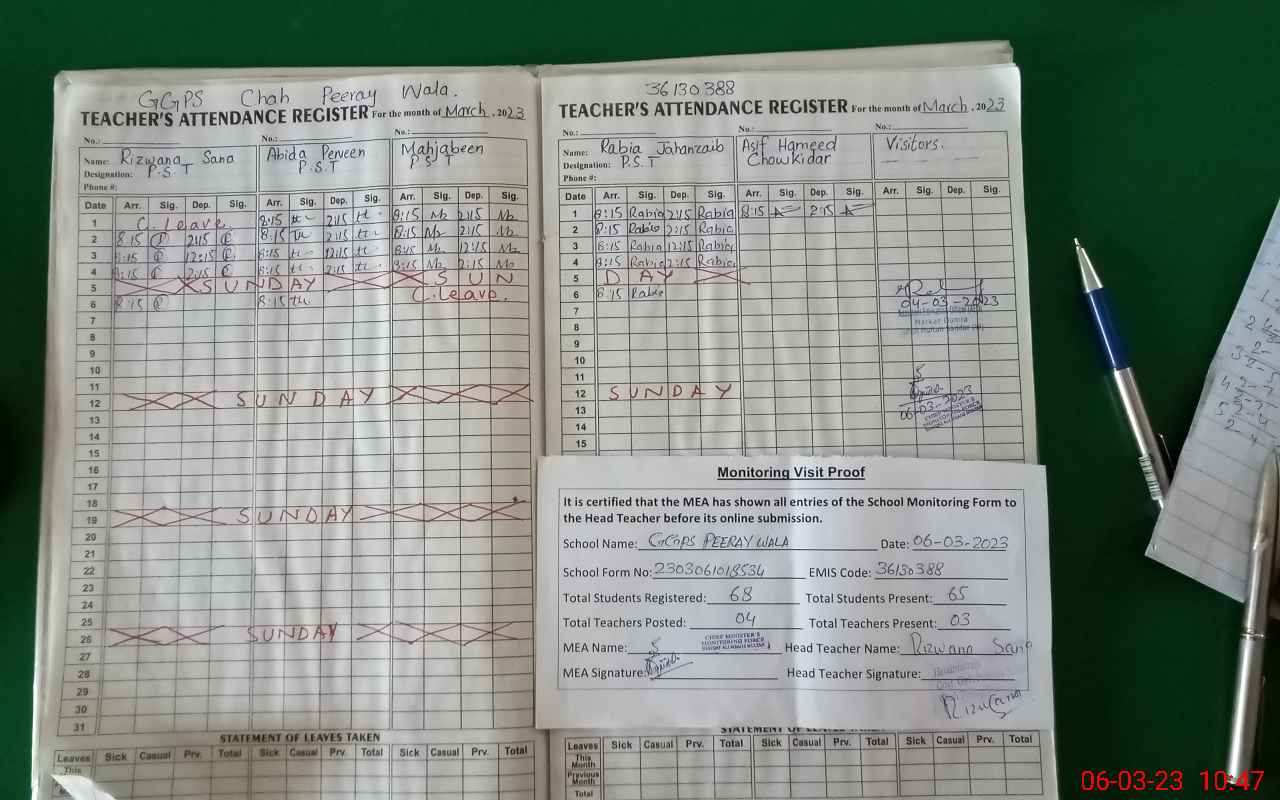 GGPS Chah Peeray Wala.
TEACHER'S ATTENDANCE REGISTER For the month of March, 2023
No.: No.: No.:
Name: Rizwana Sana Abida Perveen Mahjabeen
Designation: P.S.T P.S.T P.S.T
Phone #:
Date Arr. Sig. Dep. Sig. Arr. Sig. Dep. Sig. Arr. Sig. Dep. Sig.
1 C. Leave. 8:15 2:15 8:15 2:15
2 8:15 2:15 8:15 2:15 8:15 2:15
3 8:15 12:15 8:15 12:15 8:15 12:15
4 8:15 2:15 8:15 2:15 8:15 2:15
5 SUNDAY SUN
6 8:15 8:15 C.leave.
7
8
9
10
11
12 SUNDAY
13
14
15
16
17
18
19 SUNDAY
20
21
22
23
24
25
26 SUNDAY
27
28
29
30
31
STATEMENT OF LEAVES TAKEN
Leaves Sick Casual Prv. Total Sick Casual Prv. Total Sick Casual Prv. Total
This
36130388
TEACHER'S ATTENDANCE REGISTER For the month of March, 2023
No.: No.: No.:
Name: Rabia Jahanzaib Asif Hameed Visitors.
Designation: P.S.T Chowkidar
Phone #:
Date Arr. Sig. Dep. Sig. Arr. Sig. Dep. Sig. Arr. Sig. Dep. Sig.
1 8:15 Rabia 2:15 Rabia 8:15 2:15
2 8:15 Rabia 2:15 Rabia
3 8:15 Rabia 12:15 Rabia
4 8:15 Rabia 2:15 Rabia
5 DAY
6 8:15 Rabia
04-03-2023
7
8
9
10
11
12 SUNDAY
13 06-03-2023
14
15
Monitoring Visit Proof
It is certified that the MEA has shown all entries of the School Monitoring Form to
the Head Teacher before its online submission.
School Name: GGPS PEERAY WALA Date: 06-03-2023
School Form No: 2303061018534 EMIS Code: 36130388
Total Students Registered: 68 Total Students Present: 65
Total Teachers Posted: 04 Total Teachers Present: 03
CHIEF MINISTER'S
MONITORING FORCE
MEA Name: Head Teacher Name: Rizwana Sana
MEA Signature: Head Teacher Signature:
STATEMENT OF LEAVES TAKEN
Leaves Sick Casual Prv. Total Sick Casual Prv. Total Sick Casual Prv. Total
This Month
Previous Month
Total
06-03-23 10:47